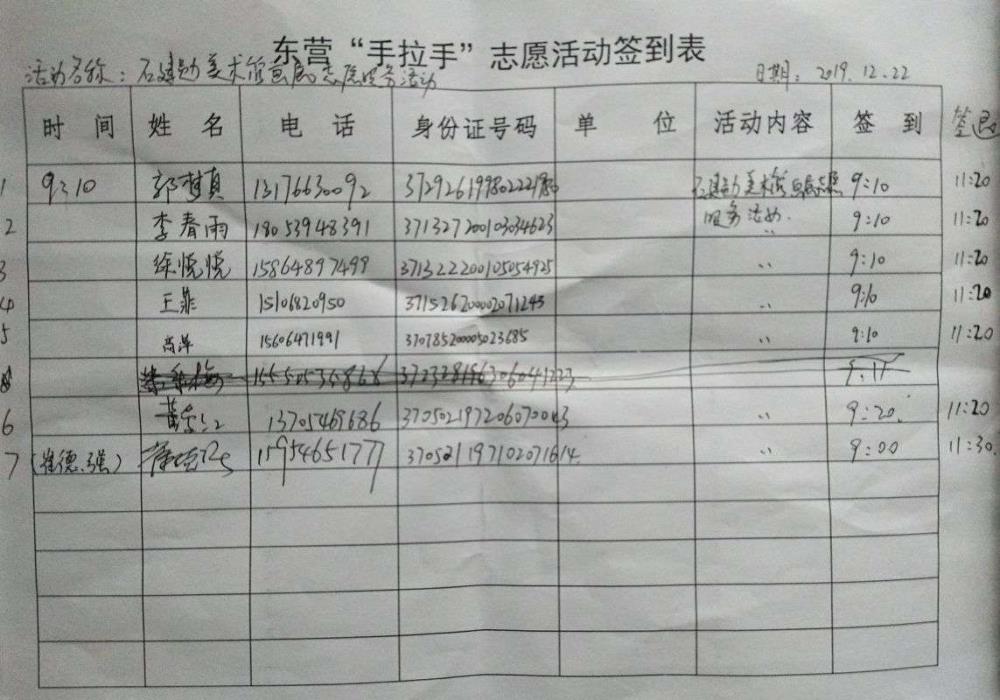 东营“手拉手”志愿活动签到表
活动名称：石建勋美术馆画展志愿服务活动
日期：2019.12.22
时 间 姓 名 电 话 身份证号码 单 位 活动内容 签 到 签退
1 9:10 郭梦真 13176630092 美术馆 9:10 11:20
服务活动
2 李春雨 18053948391 371327200103034623 〃 9:10 11:20
3 徐悦悦 15864897499 371322200105054925 〃 9:10 11:20
4 王菲 15106820950 371526200002071243 〃 9:10 11:20
5 高萍 15606471991 370785200005023685 〃 9:10 11:20
6 13705469686 370502197206070043 〃 9:20 11:20
7 (崔德强) 15954651777 〃 9:00 11:30